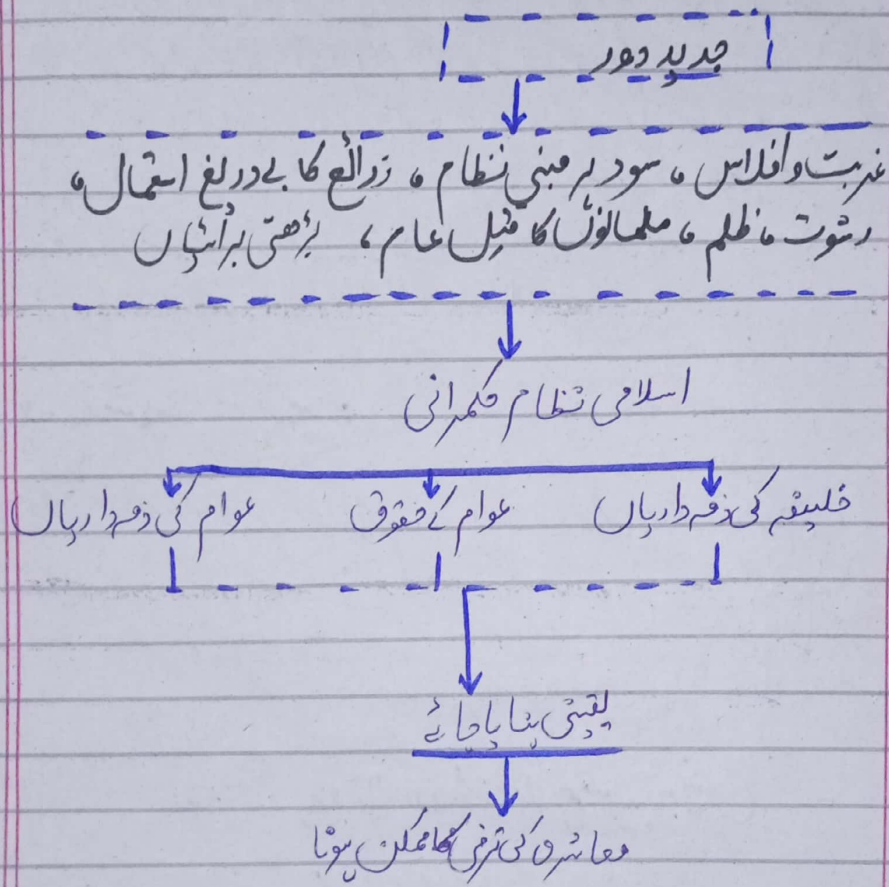 جدید دور
غربت و افلاس، سود پر مبنی نظام، زرائع کا بے دریغ استعمال،
رشوت، ظلم، مسلمانوں کا قتل عام، بڑھتی برائیاں
اسلامی نظام حکمرانی
خلیفہ کی ذمہ داریاں
عوام کے حقوق
عوام کی ذمہ داریاں
یقینی بنایا جائے
معاشرہ کی ترقی کا ممکن ہونا